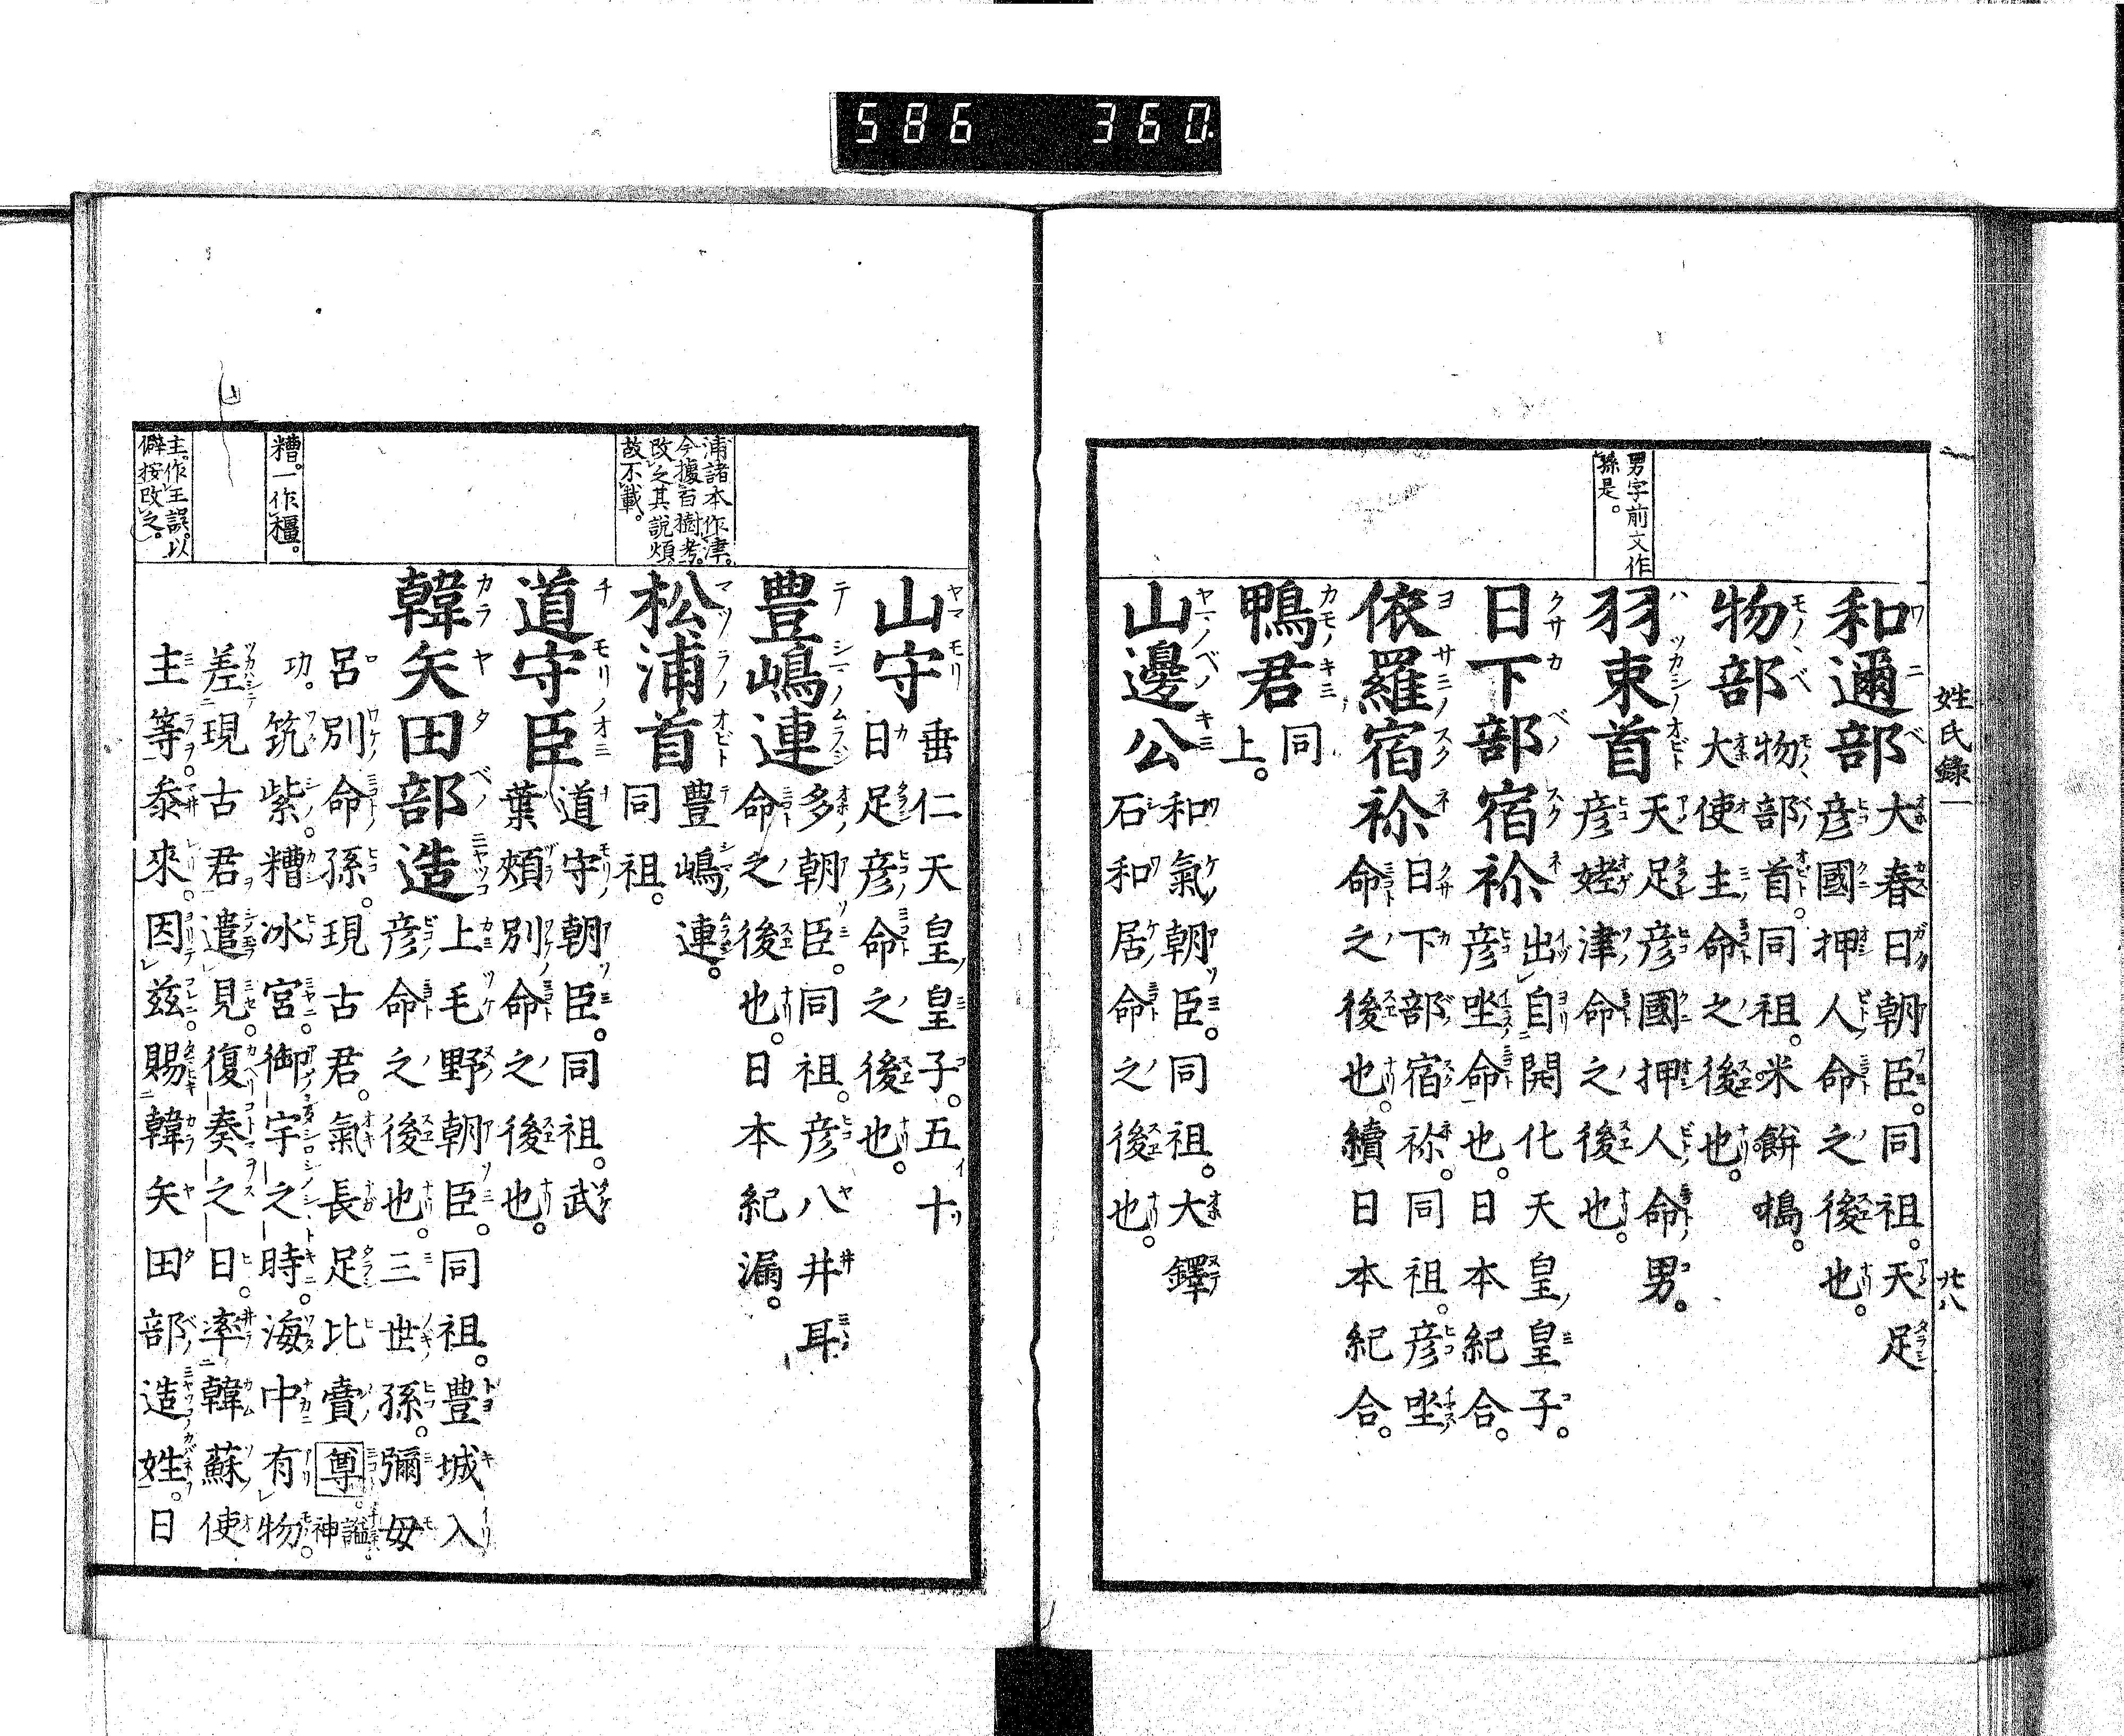 586 360
姓氏錄一
廿八
男字前文作
孫是。
和邇部 大春日朝臣。同祖。天足
彥國押人命之後也。
物部 物部首。同祖。米餅搗
大使主命之後也。
羽束首 天足彥國押人命男。
彥姥津命之後也。
日下部宿祢 出自開化天皇皇子。
彥坐命也。日本紀合。
依羅宿祢 日下部宿祢。同祖。彥坐
命之後也。續日本紀合。
鴨君 同
上。
山邊公 和氣朝臣。同祖。大鐸
石和居命之後也。
浦諸本作津。
今據百樹考。
改之其說煩
故不載。
糟。一作糧。
主。作王誤。以
僻按改之。
山守 垂仁天皇皇子。五十
日足彥命之後也。
豊嶋連 多朝臣。同祖。彥八井耳
命之後也。日本紀漏。
松浦首 豊嶋連。
同祖。
道守臣 道守朝臣。同祖。武
葉頰別命之後也。
韓矢田部造 上毛野朝臣。同祖。豊城入
彥命之後也。三世孫。彌毋
呂別命孫。現古君。氣長足比賣尊。謚神
功。筑紫。糟冰宮。御宇之時。海中有物。
差現古君遣見。復奏之日。率韓蘇使
主等。叅來。因茲賜韓矢田部造姓。日